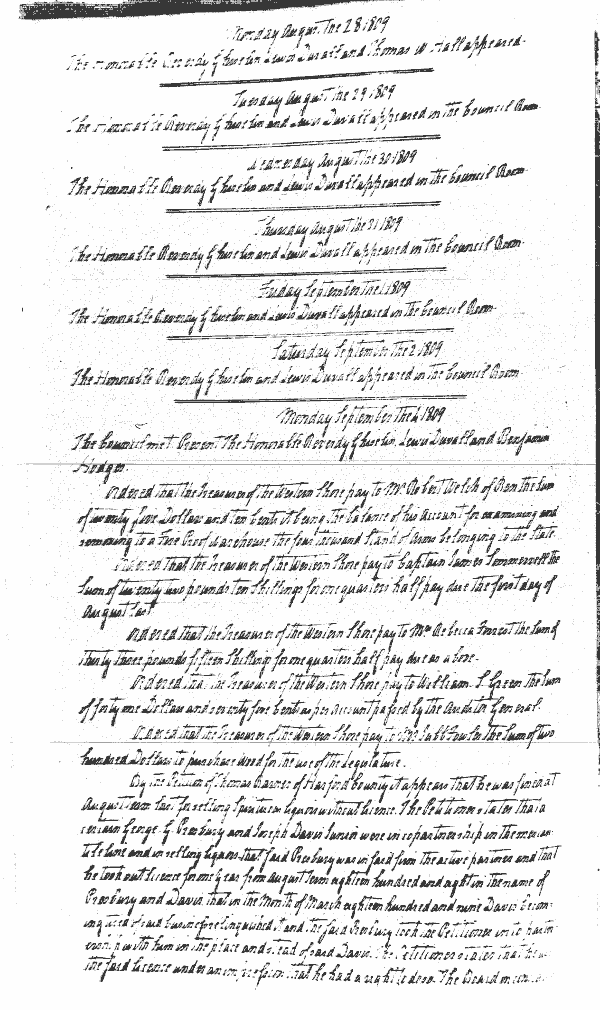 Monday August the 28 1809
The Honorable Reverdy Ghiselin Lewis Duvall and Thomas W Hall appeared.
Tuesday August the 29 1809
The Honorable Reverdy Ghiselin and Lewis Duvall appeared in the Council Room.
Wednesday August the 30 1809
The Honorable Reverdy Ghiselin and Lewis Duvall appeared in the Council Room.
Thursday August the 31 1809
The Honorable Reverdy Ghiselin and Lewis Duvall appeared in the Council Room.
Friday September the 1 1809
The Honorable Reverdy Ghiselin and Lewis Duvall appeared in the Council Room.
Saturday September the 2 1809
The Honorable Reverdy Ghiselin and Lewis Duvall appeared in the Council Room.
Monday September the 4 1809
The Council met. Present The Honorable Reverdy Ghiselin, Lewis Duvall and Benjamin
Hodges.
Ordered that the Treasurer of the Western Shore pay to Mr. Robert Welch of Ben the sum
of twenty five Dollars and ten Cents it being the balance of his account for examining and
removing to a Fire Proof Warehouse the four thousand Stand of Arms belonging to the State.
Ordered that the Treasurer of the Western Shore pay to Captain James Sommervell the
Sum of twenty two pounds ten Shillings for one quarters half pay due the first day of
August last
Ordered that the Treasurer of the Western Shore pay to Mrs Rebecca Forrest the Sum of
thirty three pounds fifteen Shillings for one quarters half pay due as above.
Ordered that the Treasurer of the Western Shore pay to William S. Green the Sum
of forty one Dollars and seventy five Cents as per Account passed by the Auditor General.
Ordered that the Treasurer of the Western Shore pay to Mr. Jabb Fowler the Sum of two
hundred Dollars to purchase Wood for the use of the Legislature.
By the Petition of Thomas Barnes of Harford County it appears that he was fined at
August Term last for selling Spirituous liquors without licence. The Petitioner states that a
certain George G. Presbury and Joseph Davis Junior were in copartnership in the mercan-
tile line and in selling liquors that said Presbury was in fact from the active partner and that
he took out licence for one year from August Term eighteen hundred and eight in the name of
Presbury and Davis, that in the Month of March eighteen hundred and nine Davis becom-
ing tired of said business relinquished it and the said Presbury took the Petitioner into partn-
ership with him in the place and stead of said Davis. The Petitioner states that he used
the said licence under an impression that he had a right to do so. The Board on